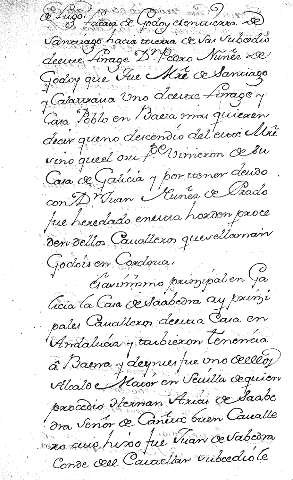 de Lugo. tacaza de Godoy
Santiago hacia tierra de
de este linage Dn Pedro Nuñez de
Godoy que fue Mre de Santiago
y Calatraua uno de este linage y
Casa Poblo en Baeza mas quieren
decir que no descendio del este Mre
sino que el i vinieron de su
Casa de Galicia y por tener deudo
con Dn Juan Nuñez de Prado
fue heredado en esta horden proce
den dellos Caualleros que se llaman
Godois en Cordoua.
Es asimismo principal en Ga
licia la Casa de Saabedra ay princi
pales Caualleros de esta Casa en
Andalucia y tubieron tenencia
de Baena y despues fue uno dellos
Alcalde Mayor en Seuilla de quien
procedio Hernan Arias de Saabe
dra Señor de buen Caualle
ro cuio hixo fue Juan de Sabedra
Conde del Castellar subcediole